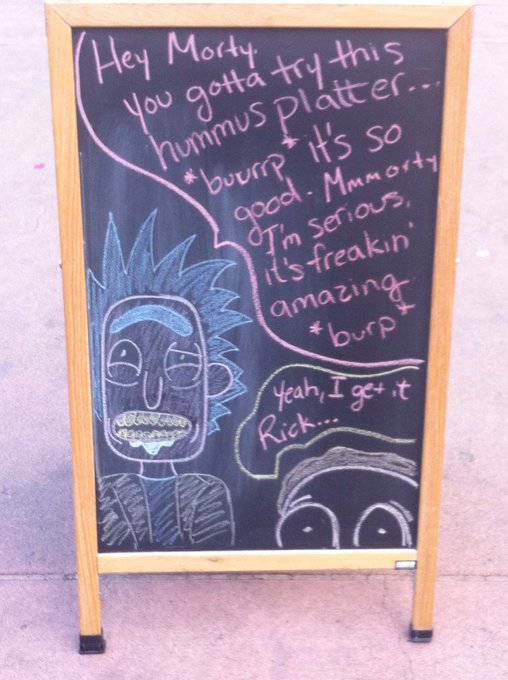 Hey Morty.
You gotta try this
hummus platter...
*buurrp* it's so
good. Mmmorty
I'm serious,
it's freakin'
amazing
*burp*
Yeah, I get it
Rick...